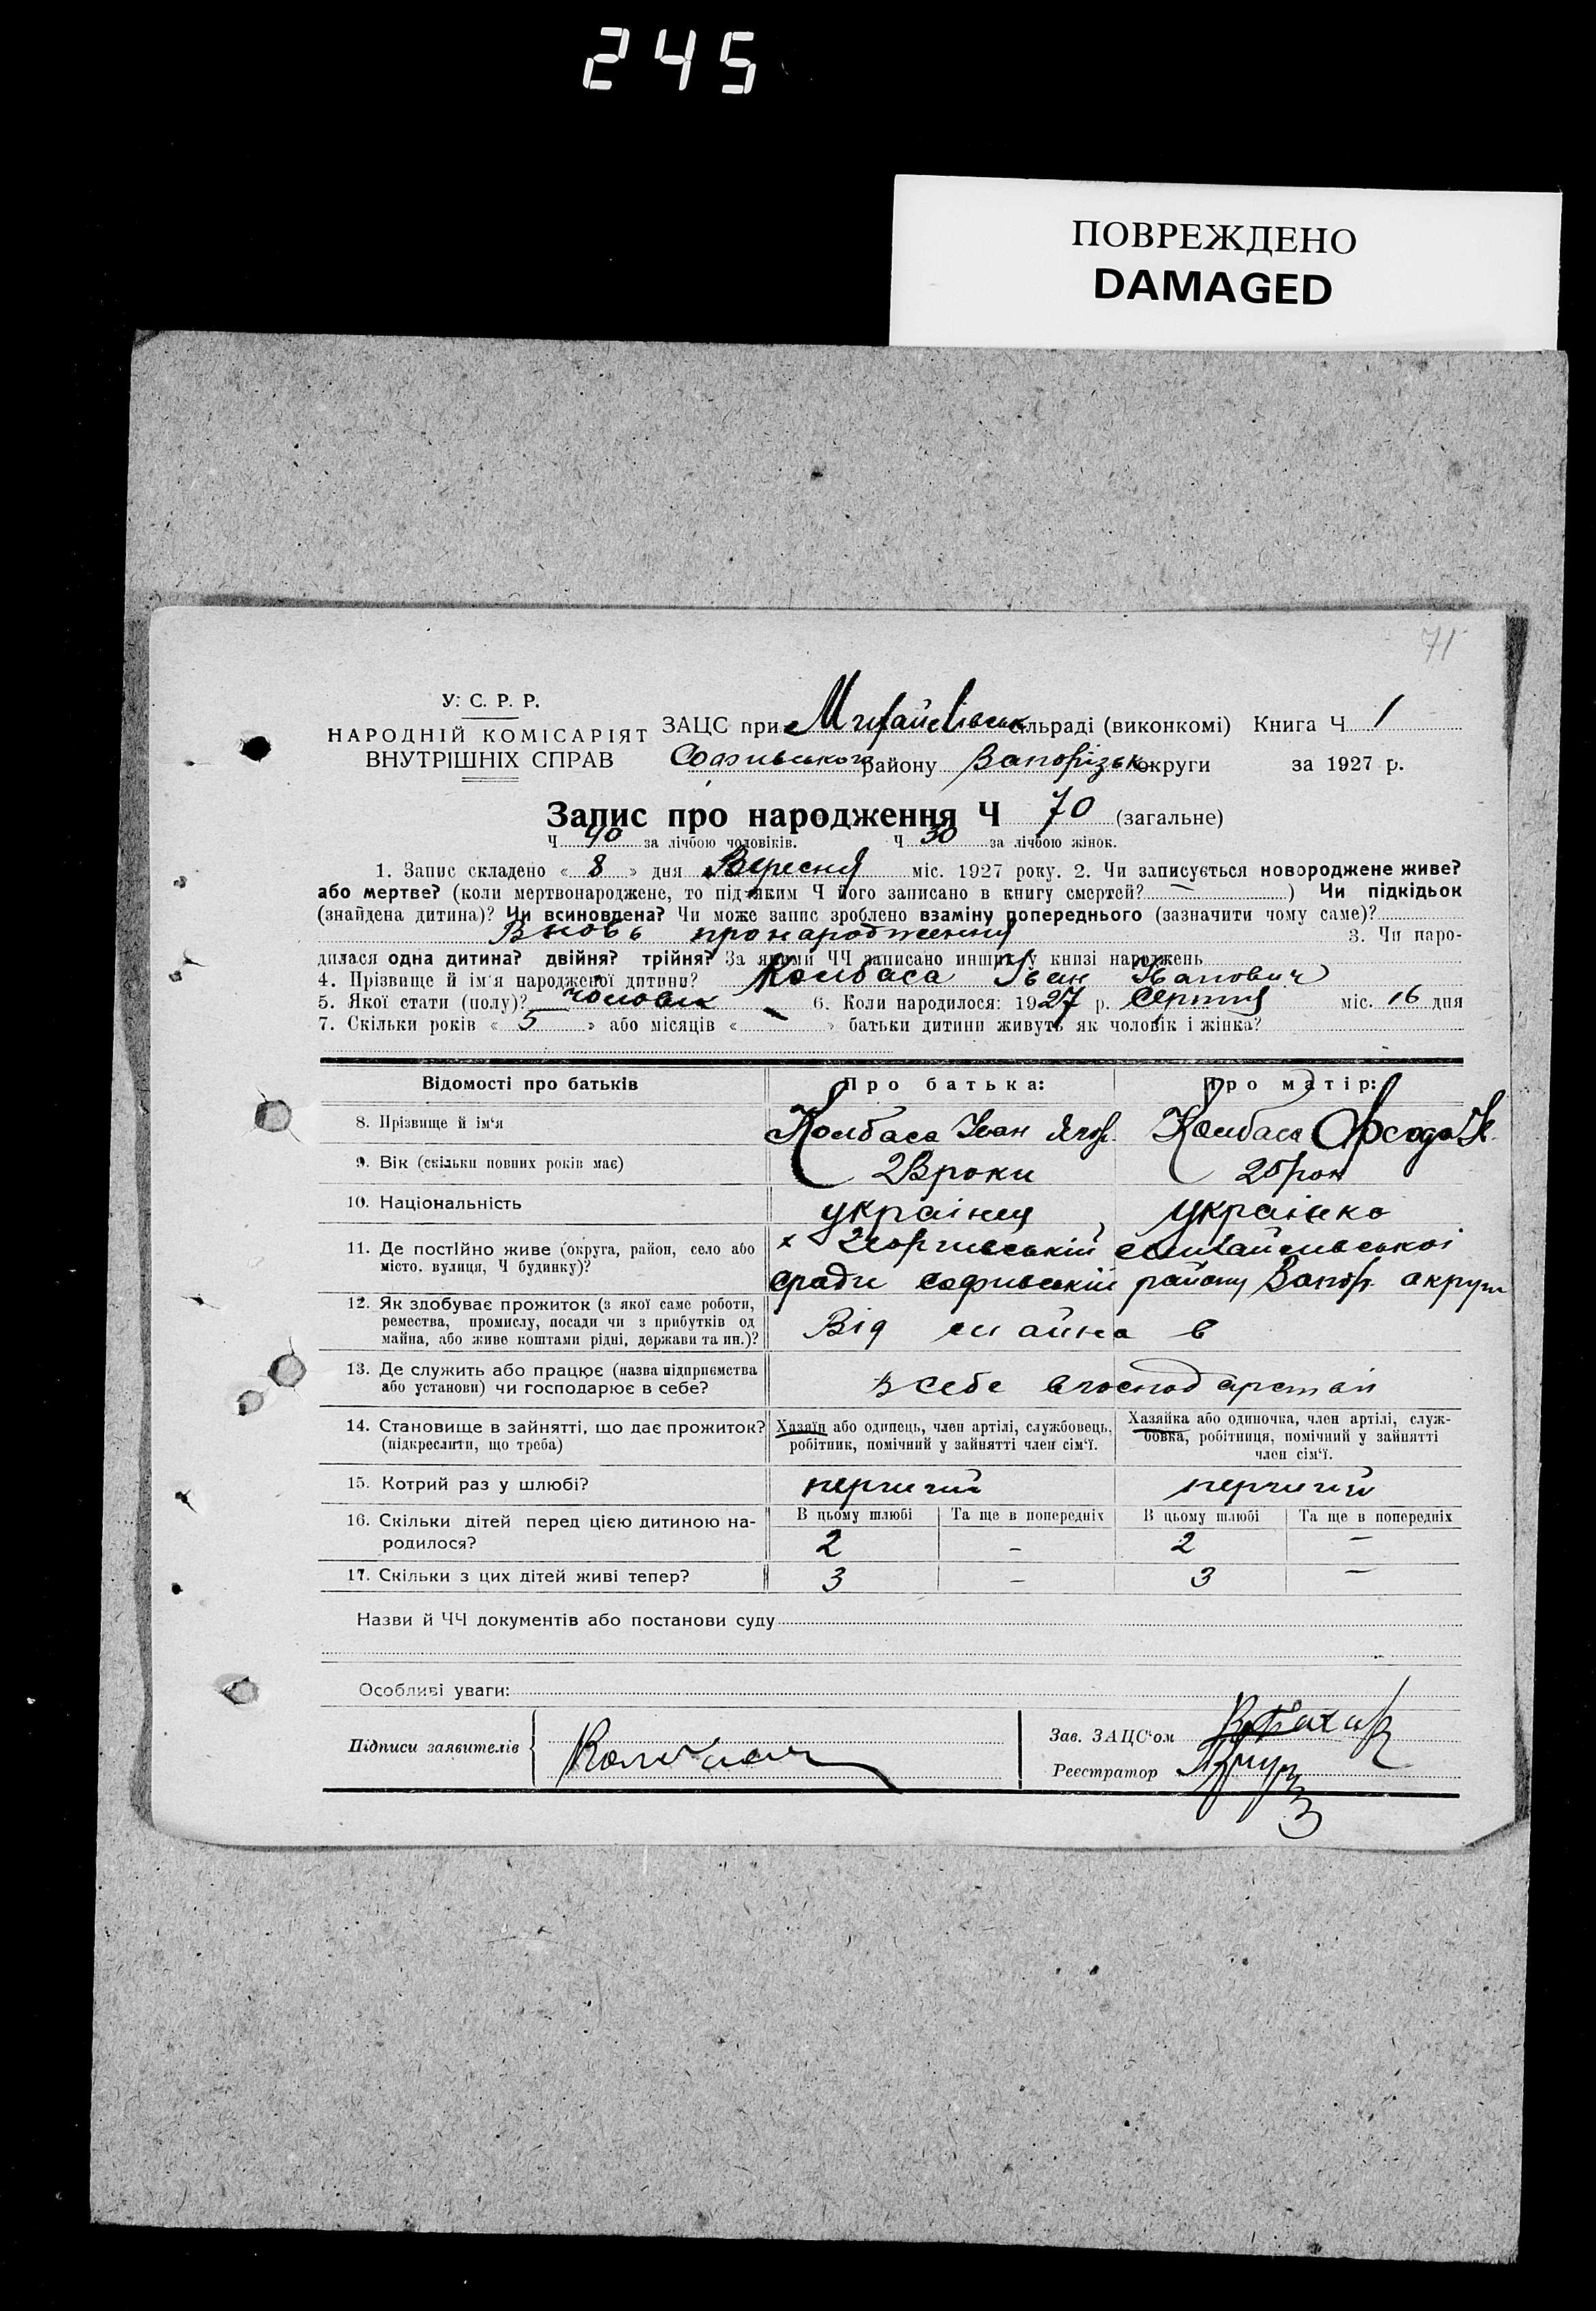 245
ПОВРЕЖДЕНО
DAMAGED
71
У. С. Р. Р.
НАРОДНІЙ КОМІСАРІЯТ
ВНУТРІШНІХ СПРАВ
ЗАЦС при Михайлівськ сільраді (виконкомі) Книга Ч 1
Софиського району Запорізьк округи за 1927 р.
Запис про народження Ч 70 (загальне)
Ч 40 за лічбою чоловіків. Ч 30 за лічбою жінок.
1. Запис складено « 8 » дня Вересня міс. 1927 року. 2. Чи записується новороджене живе?
або мертве? (коли мертвонароджене, то під яким Ч його записано в книгу смертей? — ) Чи підкідьок
(знайдена дитина)? Чи всиновлена? Чи може запис зроблено взаміну попереднього (зазначити чому саме)?
Вновь про народження 3. Чи наро-
дилася одна дитина? двійня? трійня? За якими ЧЧ записано инших у книзі народжень
4. Прізвище й ім'я народженої дитини? Колбаса Іван Іванович
5. Якої стати (полу)? чоловік 6. Коли народилося: 1927 р. Серпня міс. 16 дня
7. Скільки років « 5 » або місяців « – » батьки дитини живуть як чоловік і жінка?
Відомості про батьків Про батька: Про матір:
8. Прізвище й ім'я Колбаса Іван Колбаса
9. Вік (скільки повних років має) 23 роки 25 рок
10. Національність украінец украінка
11. Де постійно живе (округа, район, село або
місто, вулиця, Ч будинку)?
сради софивській району Запор. акруги
12. Як здобуває прожиток (з якої саме роботи,
ремества, промислу, посади чи з прибутків од
майна, або живе коштами рідні, держави та ин.)?
Від майна в
13. Де служить або працює (назва підприємства
або установи) чи господарює в себе?
в себе в
14. Становище в зайнятті, що дає прожиток?
(підкреслити, що треба)
Хазяїн або одинець, член артілі, службовець,
робітник, помічний у зайнятті член сім'ї.
Хазяйка або одиночка, член артілі, служ-
бовка, робітниця, помічний у зайнятті
член сім'ї.
15. Котрий раз у шлюбі? перший перший
16. Скільки дітей перед цією дитиною на-
родилося?
В цьому шлюбі Та ще в попередніх В цьому шлюбі Та ще в попередніх
2 – 2 –
17. Скільки з цих дітей живі тепер? 3 – 3 –
Назви й ЧЧ документів або постанови суду
Особливі уваги:
Підписи заявителів
Зав. ЗАЦС'ом
Реєстратор